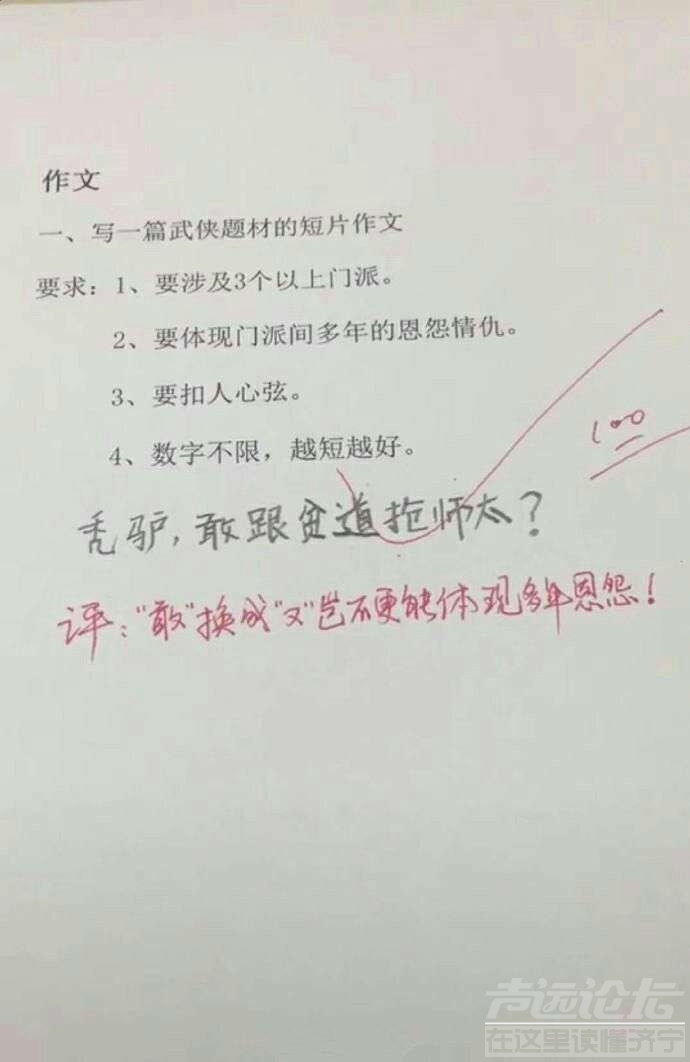 作文
一、写一篇武侠题材的短片作文
要求：1、要涉及3个以上门派。
2、要体现门派间多年的恩怨情仇。
3、要扣人心弦。
4、数字不限，越短越好。
100
秃驴，敢跟贫道抢师太？
评："敢"换成"又"岂不更能体现多年恩怨！
声远论坛
在这里读懂济宁